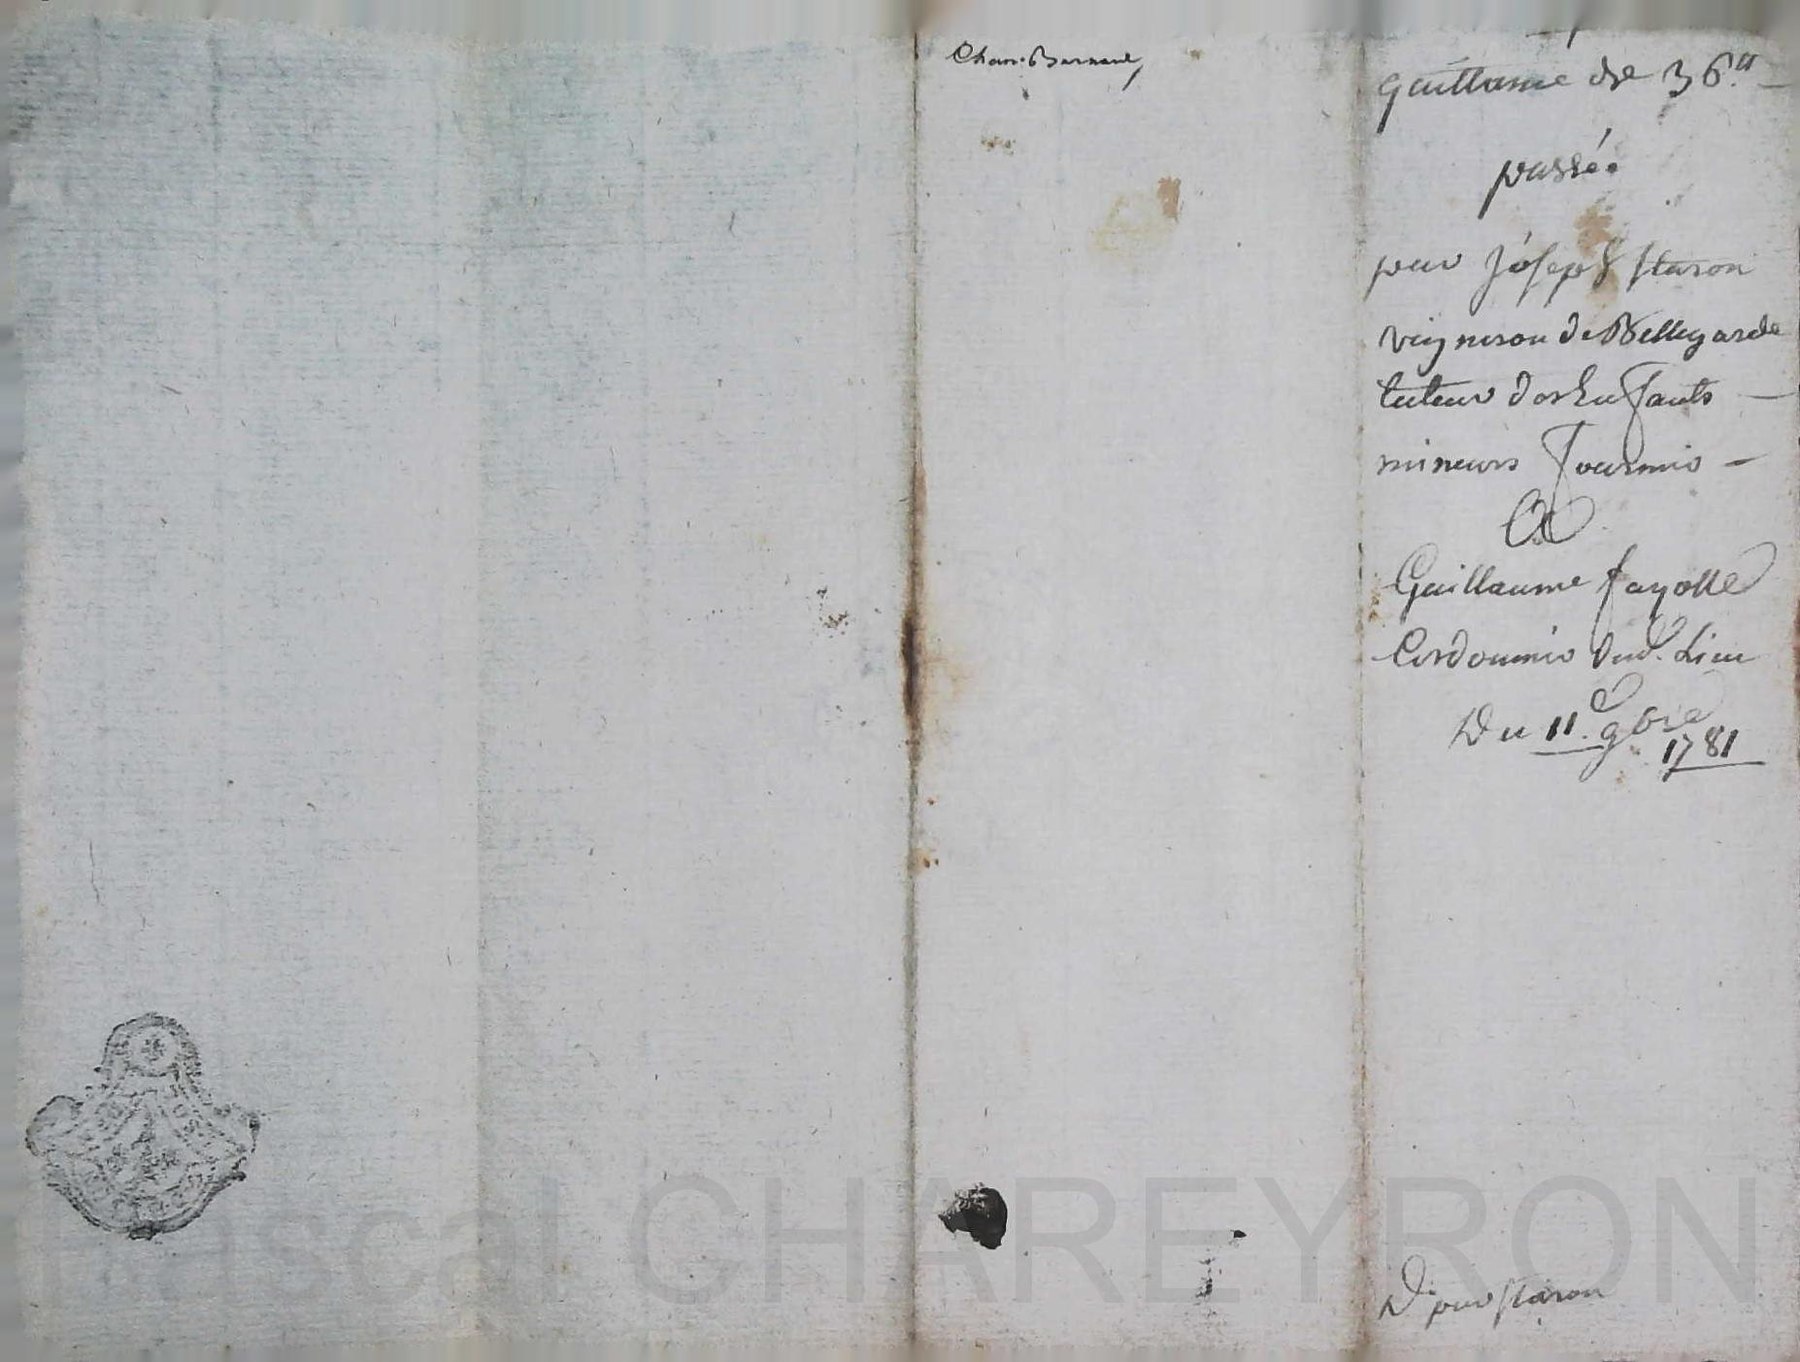 Quittance de 36.tt
passée
par Joseph Staron
vigneron de Bellegarde
tuteur des Enffants
mineurs Fournié
A
Guillaume fayolle
Cordonnié dud. Lieu
Du 11. 9bre
1781
Dt pour Staron
Pascal CHAREYRON